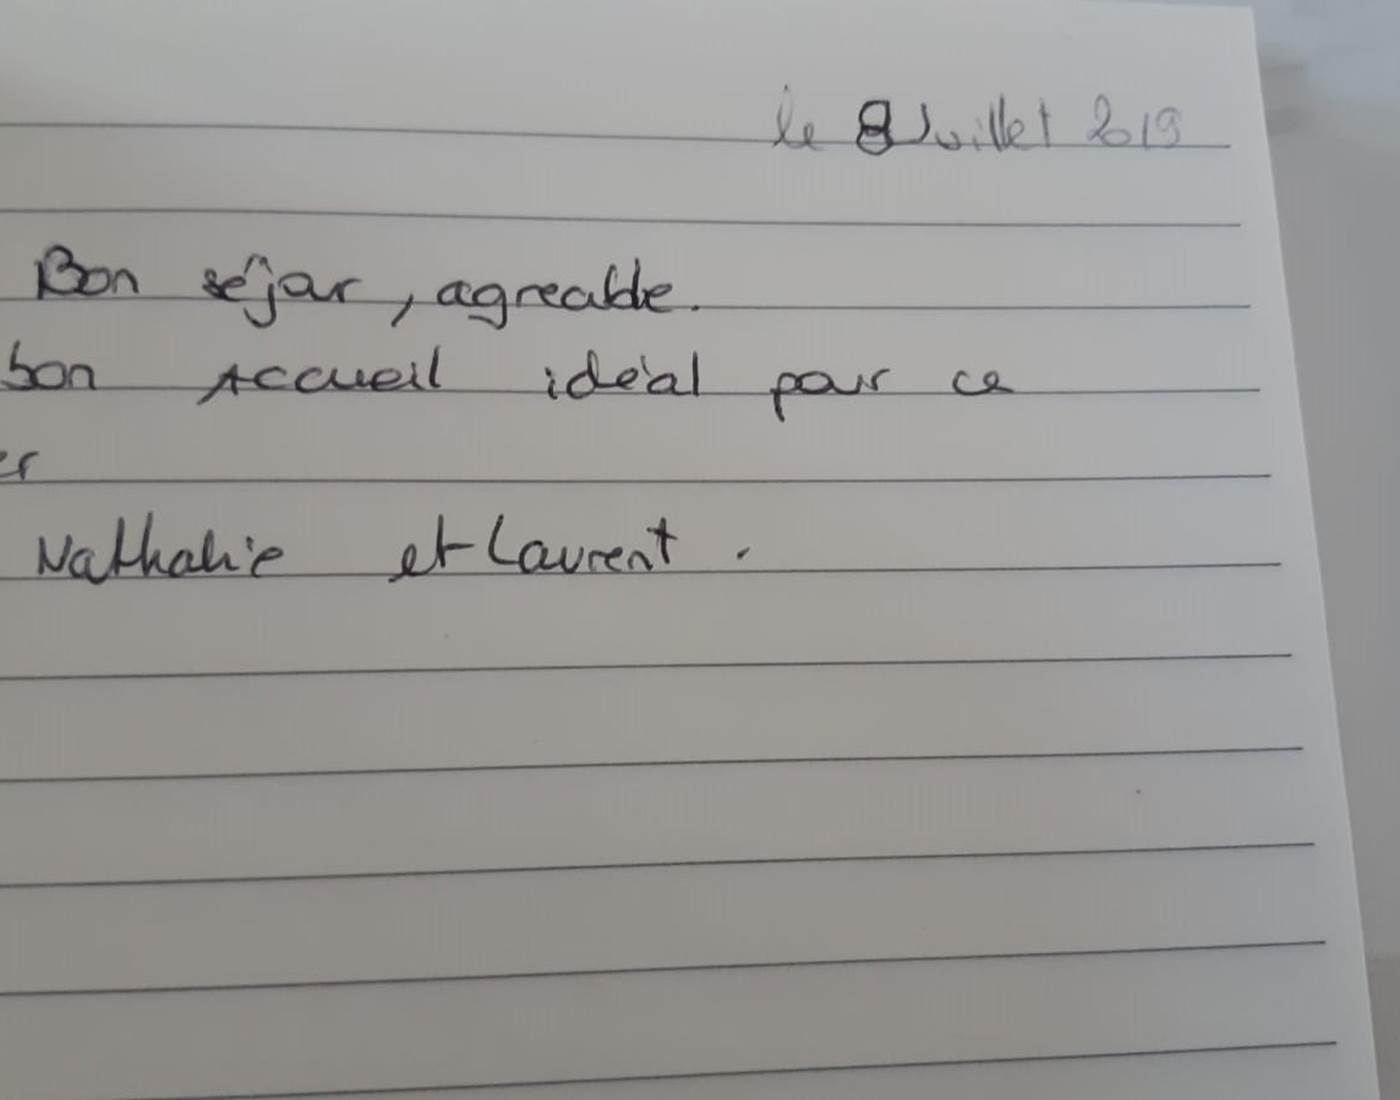 le 8 Juillet 2019
Bon séjour, agreable.
bon Accueil idéal pour ce
er
Nathalie et Laurent.